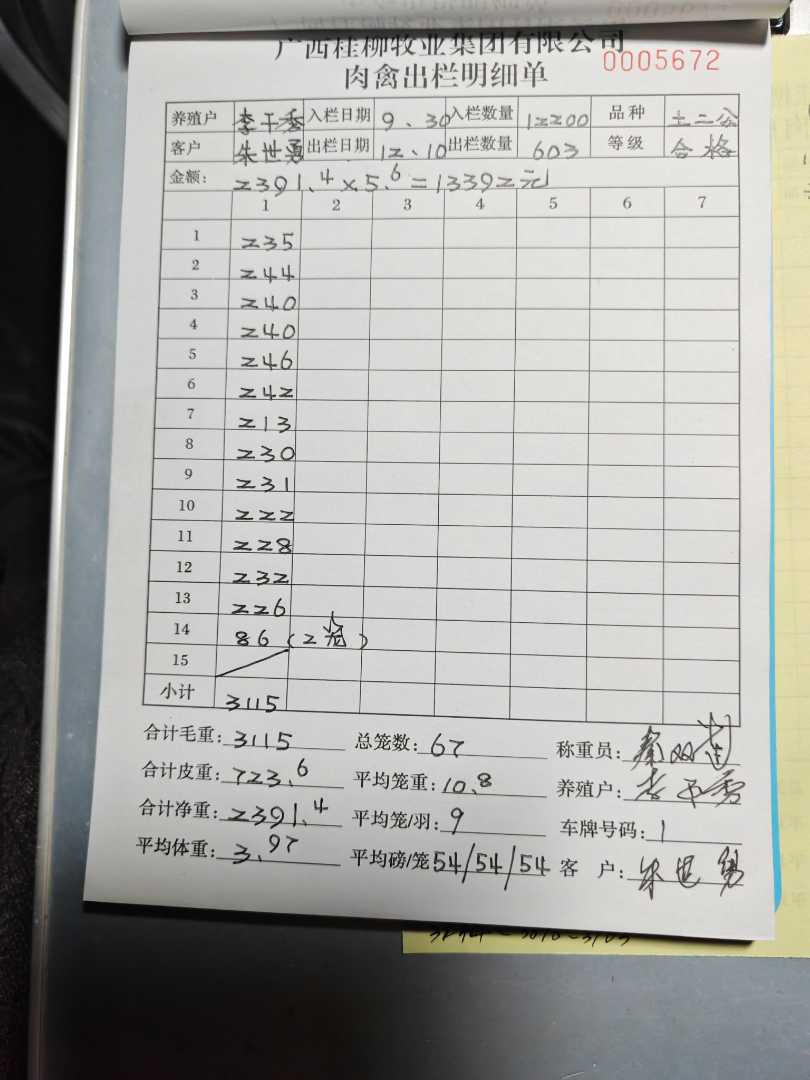 广西桂柳牧业集团有限公司
肉禽出栏明细单 0005672
养殖户 李干秀 入栏日期 9、30 入栏数量 12200 品种 土二公
客户 朱世勇 出栏日期 12、10 出栏数量 603 等级 合格
金额: 2391.4×5.6=13392元
1 2 3 4 5 6 7
1 235
2 244
3 240
4 240
5 246
6 242
7 213
8 230
9 231
10 222
11 228
12 232
13 226
14 86(2笼)
15
小计 3115
合计毛重: 3115 总笼数: 67 称重员:
合计皮重: 723.6 平均笼重: 10.8 养殖户: 李干秀
合计净重: 2391.4 平均笼/羽: 9 车牌号码: 1
平均体重: 3.97 平均磅/笼 54/54/54 客 户: 朱世勇